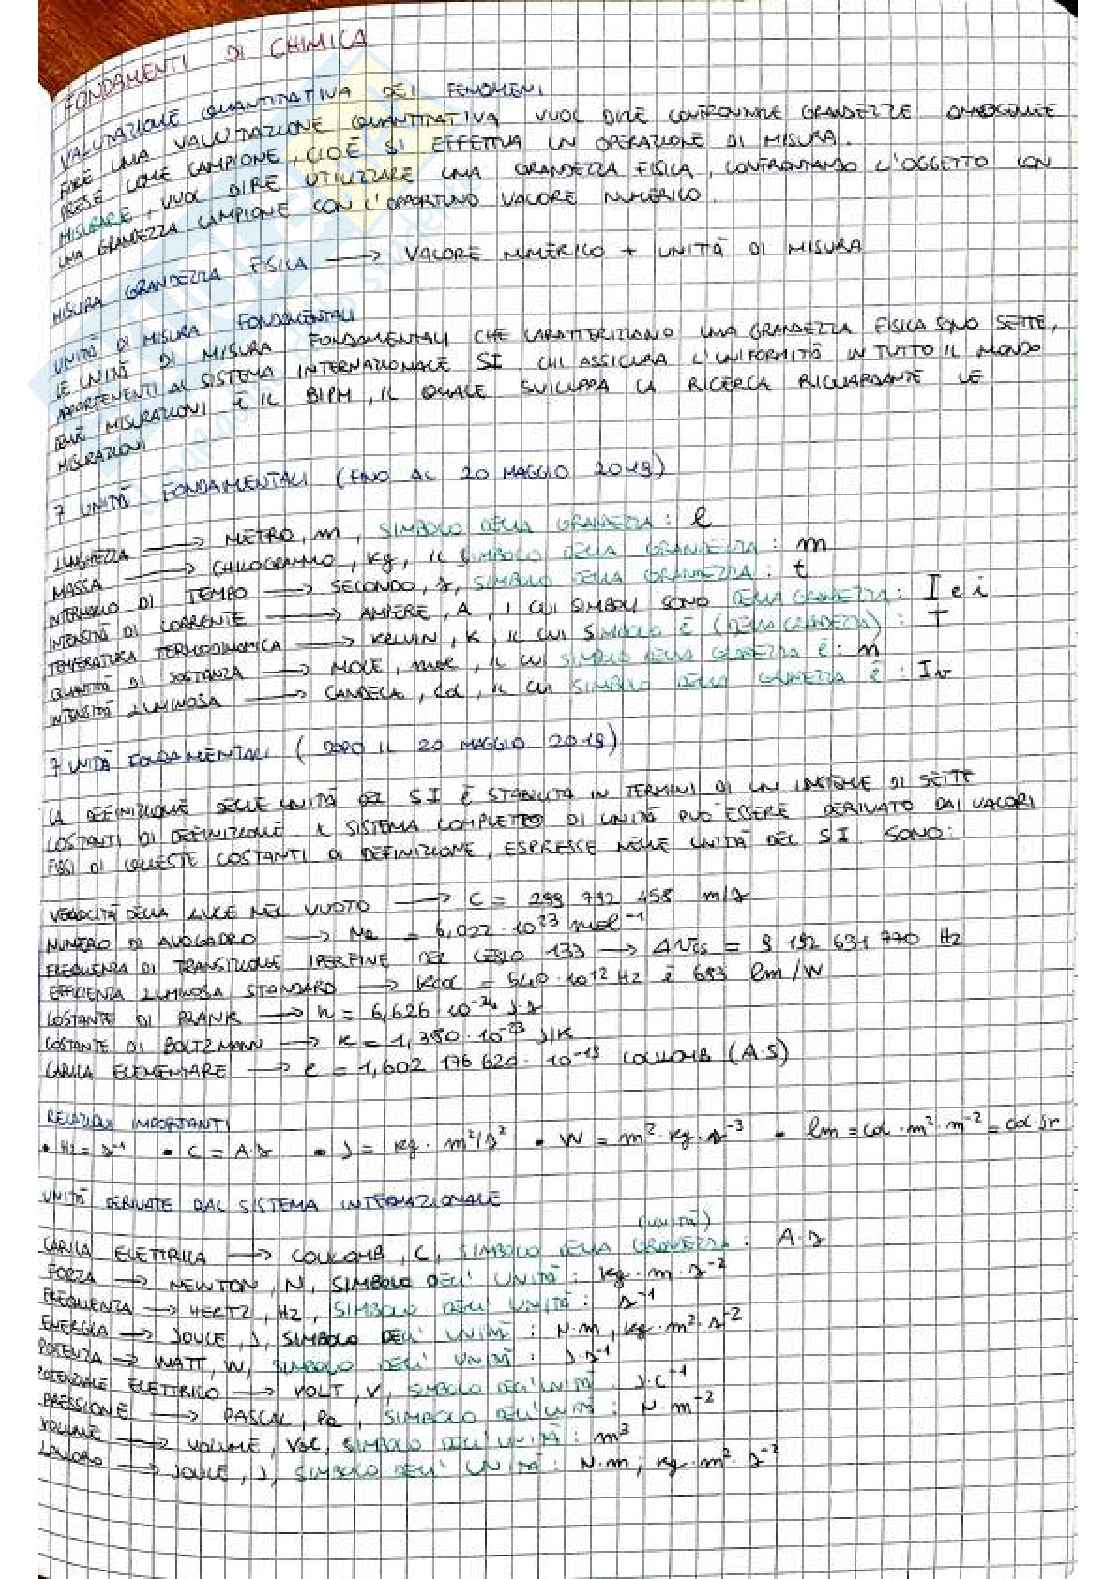 FONDAMENTI DI CHIMICA
VALUTAZIONE QUANTITATIVA DEI FENOMENI
FARE UNA VALUTAZIONE QUANTITATIVA VUOL DIRE CONFRONTARE GRANDEZZE OMOGENEE
PRESE COME CAMPIONE, CIOÈ SI EFFETTUA UN OPERAZIONE DI MISURA.
MISURARE, VUOL DIRE UTILIZZARE UNA GRANDEZZA FISICA, CONFRONTANDO L'OGGETTO CON
UNA GRANDEZZA CAMPIONE CON L'OPPORTUNO VALORE NUMERICO.
MISURA GRANDEZZA FISICA → VALORE NUMERICO + UNITÀ DI MISURA
UNITÀ DI MISURA FONDAMENTALI
LE UNITÀ DI MISURA FONDAMENTALI CHE CARATTERIZZANO UNA GRANDEZZA FISICA SONO SETTE,
APPARTENENTI AL SISTEMA INTERNAZIONALE SI. CHI ASSICURA L'UNIFORMITÀ IN TUTTO IL MONDO
DELLE MISURAZIONI È IL BIPM, IL QUALE SVILUPPA LA RICERCA RIGUARDANTE LE
MISURAZIONI
7 UNITÀ FONDAMENTALI (FINO AL 20 MAGGIO 2019)
LUNGHEZZA → METRO, m, SIMBOLO DELLA GRANDEZZA: l
MASSA → CHILOGRAMMO, Kg, IL SIMBOLO DELLA GRANDEZZA: m
INTERVALLO DI TEMPO → SECONDO, s, SIMBOLO DELLA GRANDEZZA: t
INTENSITÀ DI CORRENTE → AMPERE, A, I CUI SIMBOLI SONO DELLA GRANDEZZA: I e i
TEMPERATURA TERMODINAMICA → KELVIN, K, IL CUI SIMBOLO È (DELLA GRANDEZZA): T
QUANTITÀ DI SOSTANZA → MOLE, mol, IL CUI SIMBOLO DELLA GRANDEZZA È: n
INTENSITÀ LUMINOSA → CANDELA, cd, IL CUI SIMBOLO DELLA GRANDEZZA È: Iv
7 UNITÀ FONDAMENTALI (DOPO IL 20 MAGGIO 2019)
LA DEFINIZIONE DELLE UNITÀ DEL SI È STABILITA IN TERMINI DI UN INSIEME DI SETTE
COSTANTI DI DEFINIZIONE. IL SISTEMA COMPLETO DI UNITÀ PUÒ ESSERE DERIVATO DAI VALORI
FISSI DI QUESTE COSTANTI DI DEFINIZIONE, ESPRESSE NELLE UNITÀ DEL SI. SONO:
VELOCITÀ DELLA LUCE NEL VUOTO → C = 299 792 458 m/s
NUMERO DI AVOGADRO → Na = 6,022·10²³ mol⁻¹
FREQUENZA DI TRANSIZIONE IPERFINE DEL CESIO 133 → ΔνCs = 9 192 631 770 Hz
EFFICIENZA LUMINOSA STANDARD → Kcd = 540·10¹² Hz È 683 lm/W
COSTANTE DI PLANK → h = 6,626·10⁻³⁴ J·s
COSTANTE DI BOLTZMANN → K = 1,380·10⁻²³ J/K
CARICA ELEMENTARE → e = 1,602 176 620·10⁻¹⁹ COULOMB (A·S)
RELAZIONI IMPORTANTI
• Hz = s⁻¹ • C = A·s • J = Kg·m²/s² • W = m²·Kg·s⁻³ • lm = cd·m²·m⁻² = cd sr
UNITÀ DERIVATE DAL SISTEMA INTERNAZIONALE
(UNITÀ)
CARICA ELETTRICA → COULOMB, C, SIMBOLO DELLA GRANDEZZA: A·s
FORZA → NEWTON, N, SIMBOLO DELL'UNITÀ: Kg·m·s⁻²
FREQUENZA → HERTZ, Hz, SIMBOLO DELL'UNITÀ: s⁻¹
ENERGIA → JOULE, J, SIMBOLO DELL'UNITÀ: N·m, Kg·m²·s⁻²
POTENZA → WATT, W, SIMBOLO DELL'UNITÀ: J·s⁻¹
POTENZIALE ELETTRICO → VOLT, V, SIMBOLO DELL'UNITÀ: J·C⁻¹
PRESSIONE → PASCAL, Pa, SIMBOLO DELL'UNITÀ: N·m⁻²
VOLUME → VOLUME, SIMBOLO DELL'UNITÀ: m³
LAVORO → JOULE, J, SIMBOLO DELL'UNITÀ: N·m, Kg·m²·s⁻²